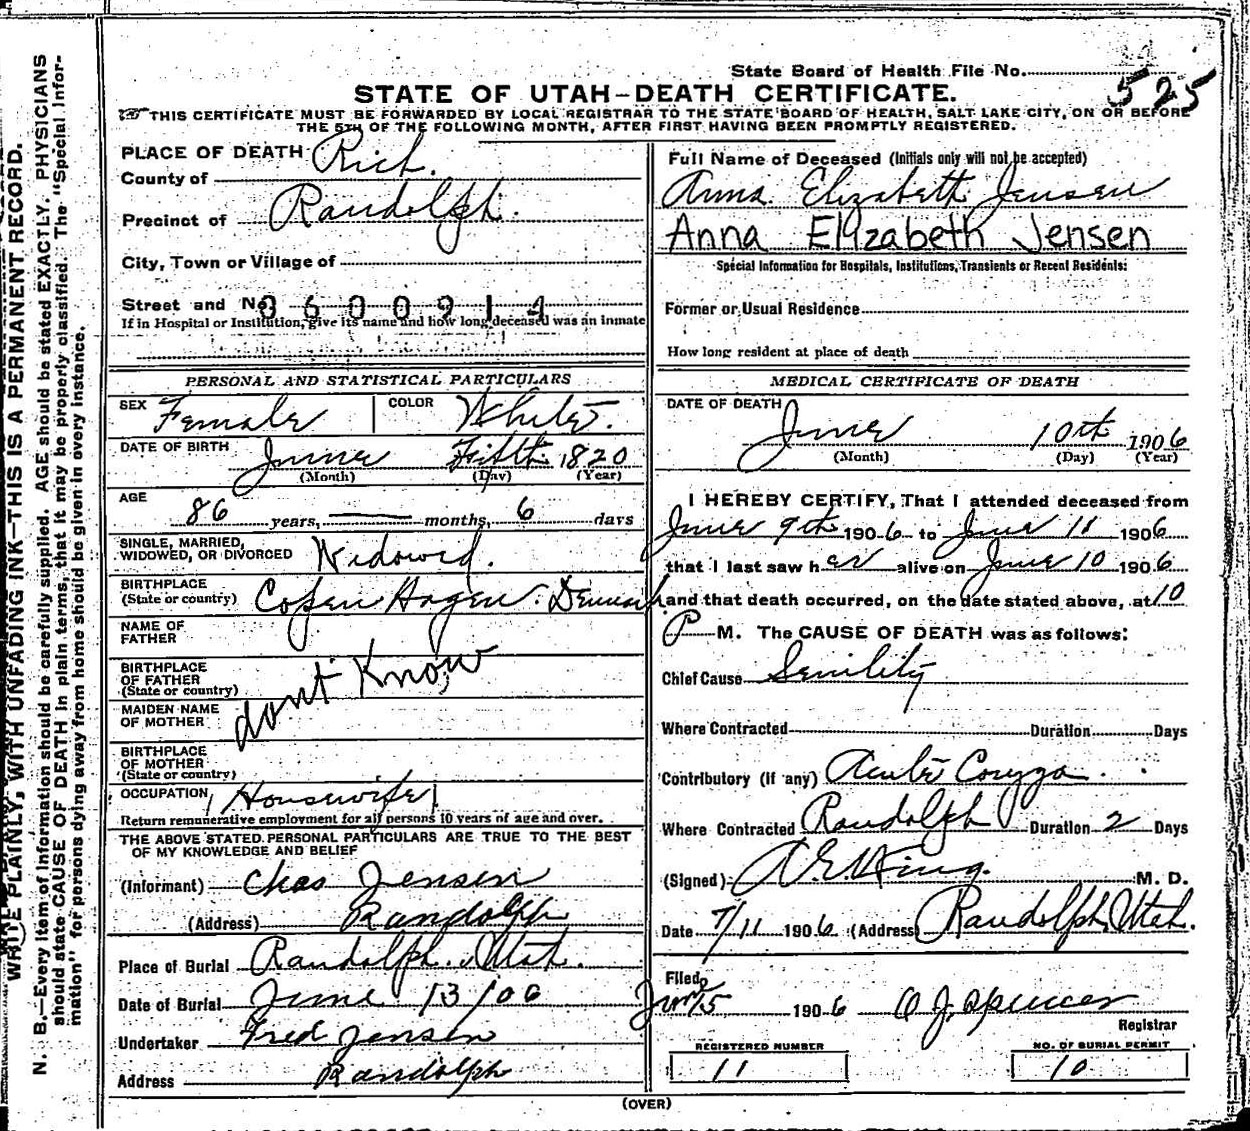 WRITE PLAINLY, WITH UNFADING INK—THIS IS A PERMANENT RECORD.
N. B.—Every item of Information should be carefully supplied. AGE should be stated EXACTLY. PHYSICIANS
should state CAUSE OF DEATH in plain terms, that it may be properly classified. The "Special Infor-
mation" for persons dying away from home should be given in every instance.
State Board of Health File No. 525
STATE OF UTAH—DEATH CERTIFICATE.
THIS CERTIFICATE MUST BE FORWARDED BY LOCAL REGISTRAR TO THE STATE BOARD OF HEALTH, SALT LAKE CITY, ON OR BEFORE
THE 5TH OF THE FOLLOWING MONTH, AFTER FIRST HAVING BEEN PROMPTLY REGISTERED.
PLACE OF DEATH
County of Rich.
Precinct of Randolph.
City, Town or Village of
Street and No. 3600914
If in Hospital or Institution, give its name and how long deceased was an inmate
PERSONAL AND STATISTICAL PARTICULARS
SEX Female COLOR White.
DATE OF BIRTH June Fifth 1820
(Month) (Day) (Year)
AGE
86 years, — months, 6 days
SINGLE, MARRIED,
WIDOWED, OR DIVORCED Widowed.
BIRTHPLACE
(State or country) Copen Hagen. Denmark
NAME OF
FATHER
BIRTHPLACE
OF FATHER
(State or country) dont Know
MAIDEN NAME
OF MOTHER
BIRTHPLACE
OF MOTHER
(State or country)
OCCUPATION Housewife
Return remunerative employment for all persons 10 years of age and over.
THE ABOVE STATED PERSONAL PARTICULARS ARE TRUE TO THE BEST
OF MY KNOWLEDGE AND BELIEF
(Informant) Chas Jensen
(Address) Randolph
Place of Burial Randolph. Utah.
Date of Burial June 13/06
Undertaker Fred Jensen
Address Randolph
Full Name of Deceased (Initials only will not be accepted)
Anna Elizabeth Jensen
Anna Elizabeth Jensen
Special Information for Hospitals, Institutions, Transients or Recent Residents:
Former or Usual Residence
How long resident at place of death
MEDICAL CERTIFICATE OF DEATH
DATE OF DEATH
June 10th 1906
(Month) (Day) (Year)
I HEREBY CERTIFY, That I attended deceased from
June 9th 1906 to June 11 1906
that I last saw her alive on June 10 1906
and that death occurred, on the date stated above, at 10
P M. The CAUSE OF DEATH was as follows:
Chief Cause Senility
Where Contracted Duration Days
Contributory (if any) Acute Coryza.
Where Contracted Randolph Duration 2 Days
(Signed) King. M. D.
Date 7/11 1906 (Address) Randolph, Utah.
Filed
15 1906 O J. Spencer
Registrar
REGISTERED NUMBER
11
NO. OF BURIAL PERMIT
10
(OVER)